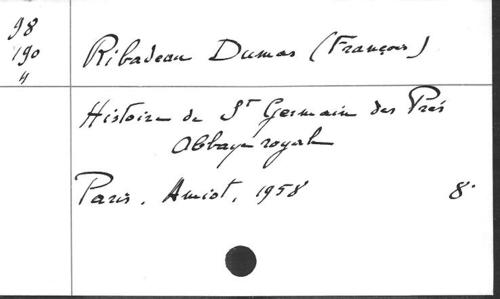 98
190
4
Ribadeau Dumas (François)
Histoire de St Germain des Prés
Abbaye royale
Paris. Amiot, 1958 8°